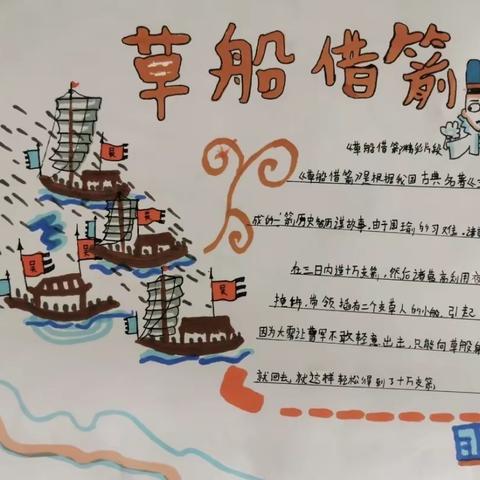 草船借箭
《草船借箭》精彩片段
《草船借箭》是根据我国古典名著《
成的一篇历史 故事,由于周瑜的 ,
在三日内造十万支箭,然后诸葛亮利用
带领 有二个支草人的小船,引起
因为大雾让曹军不敢轻意出击,只能向草船
就回去,就这样轻松得到了十万支箭
吴
吴
吴
吴